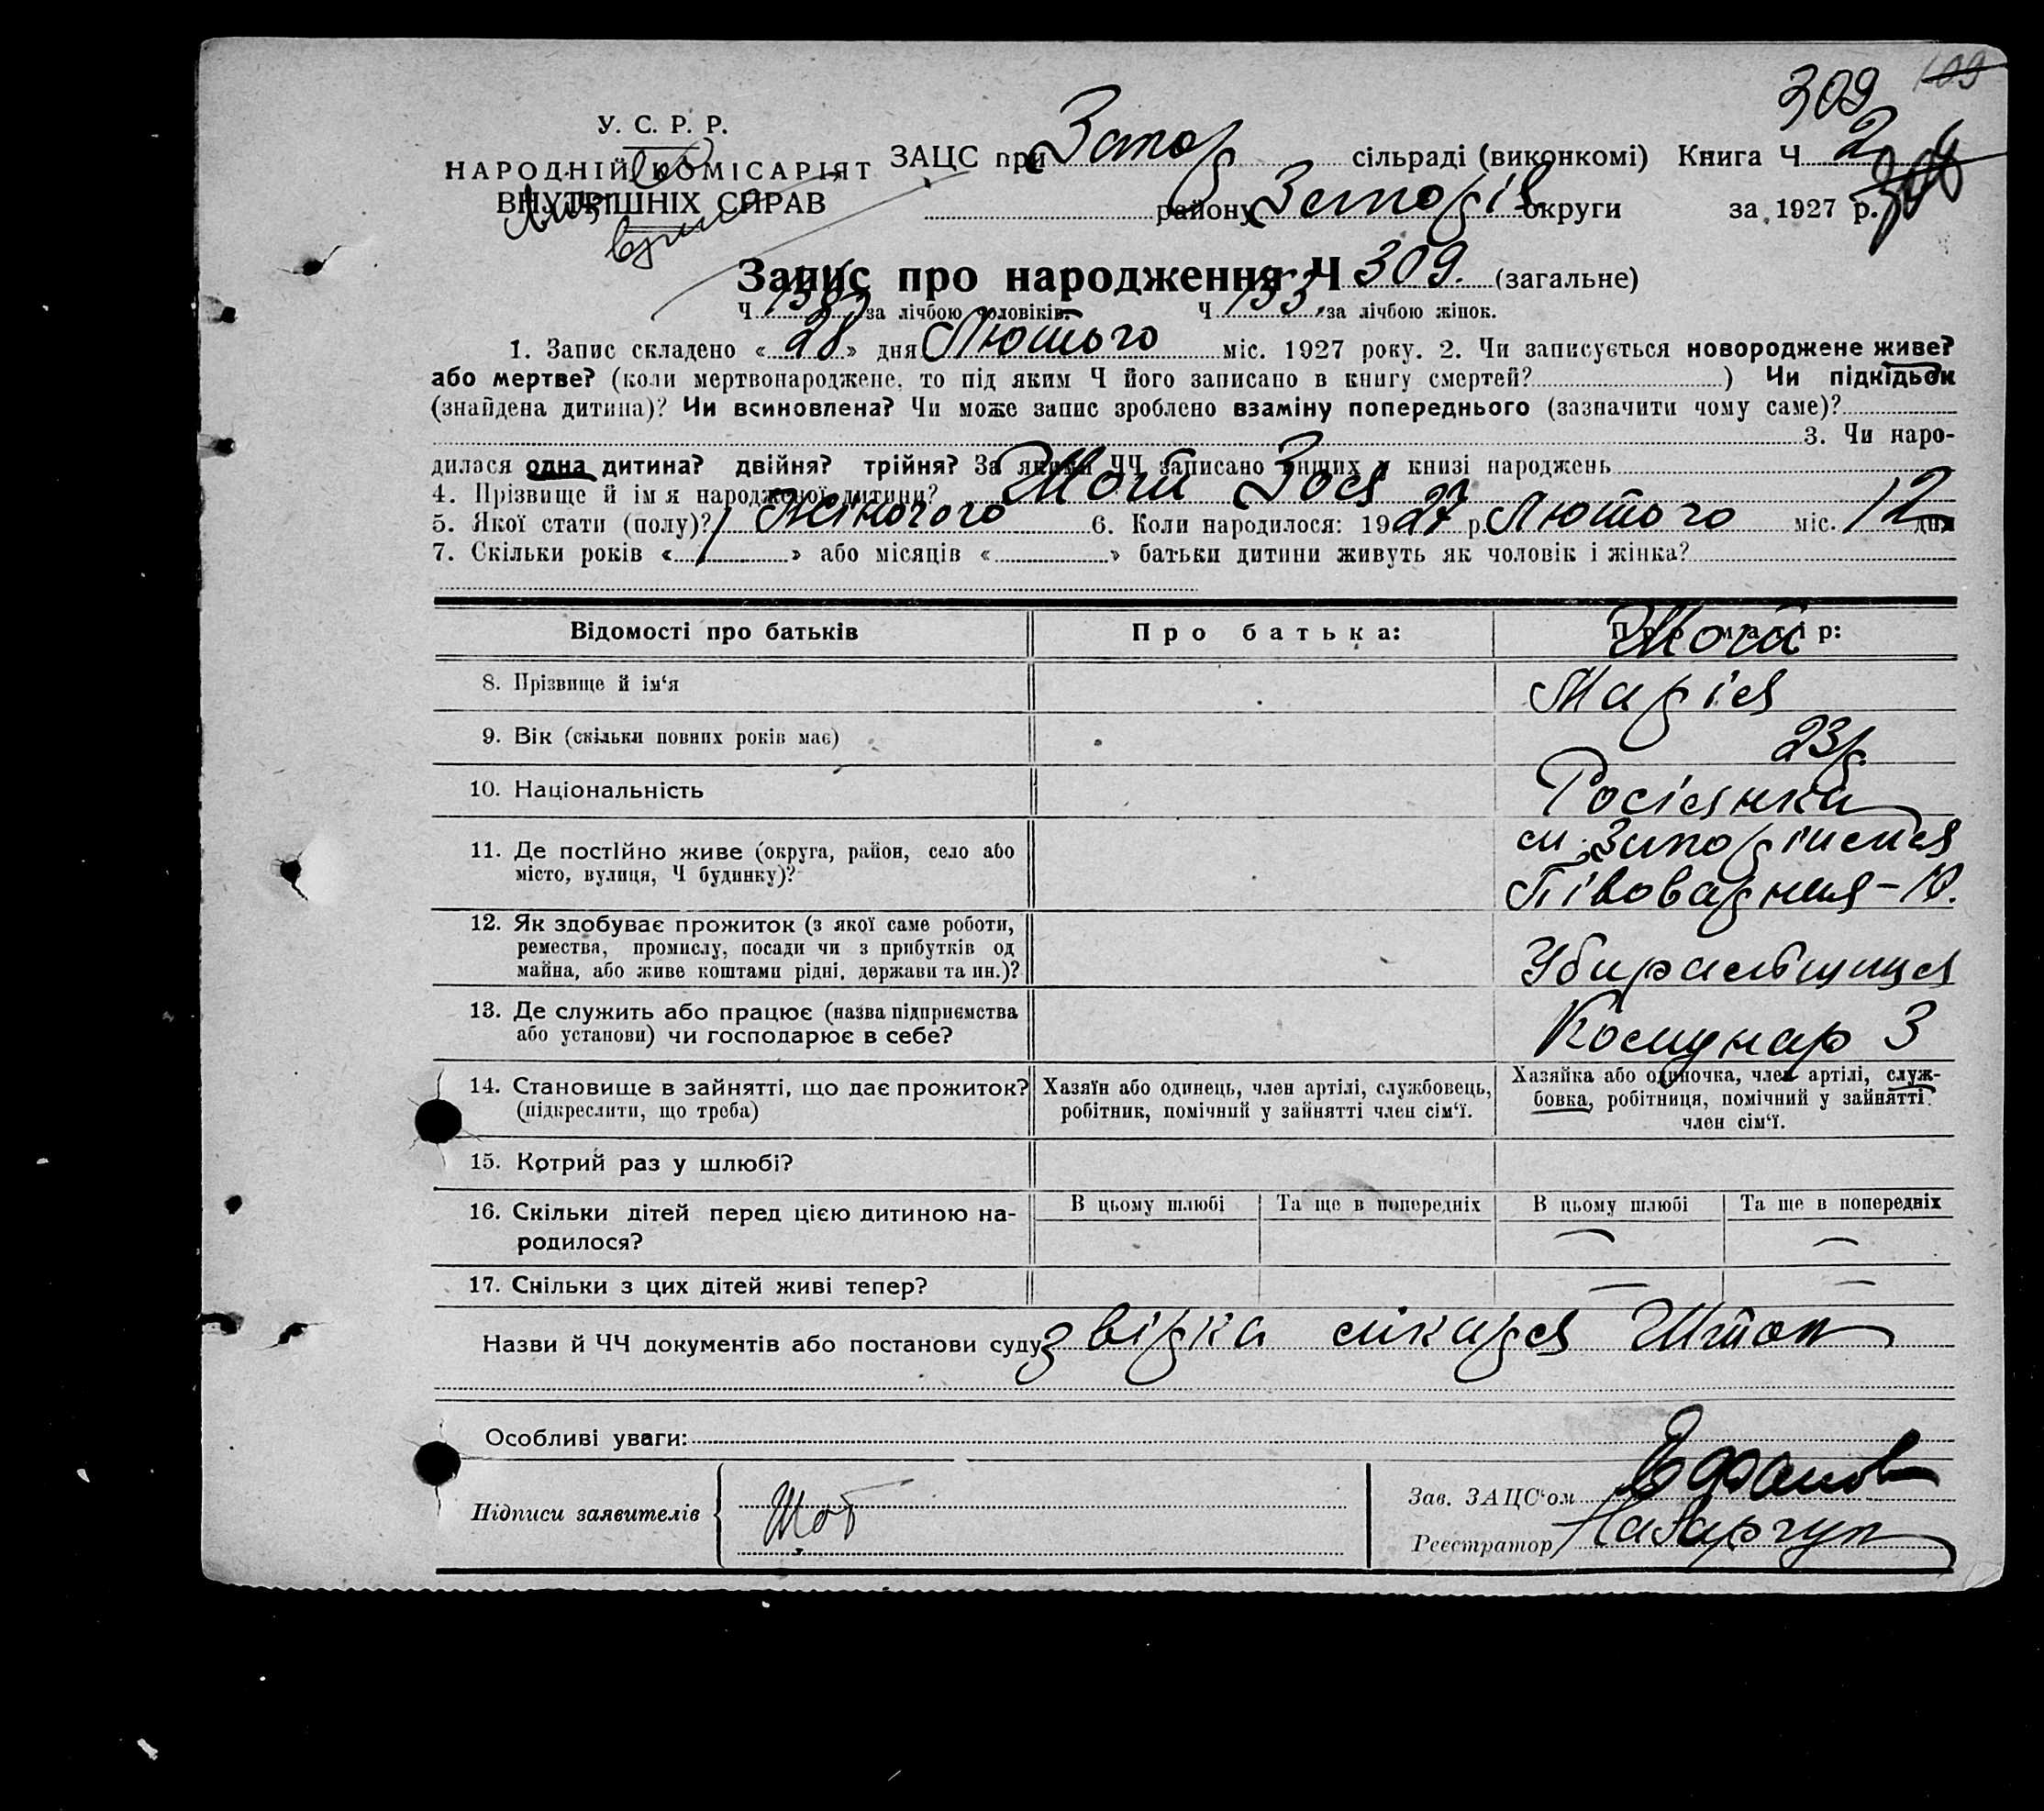 309 109
У. С. Р. Р.
НАРОДНІЙ КОМІСАРІЯТ
ВНУТРІШНІХ СПРАВ
ЗАЦС при Запор сільраді (виконкомі) Книга Ч 2
району Запоріз. округи за 1927 р.
Запис про народження Ч 309. (загальне)
Ч за лічбою чоловіків. Ч 153 за лічбою жінок.
1. Запис складено « 28 » дня Лютого міс. 1927 року. 2. Чи записується новороджене живе?
або мертве? (коли мертвонароджене, то під яким Ч його записано в книгу смертей? ) Чи підкідьок
(знайдена дитина)? Чи всиновлена? Чи може запис зроблено взаміну попереднього (зазначити чому саме)?
3. Чи наро-
дилася одна дитина? двійня? трійня? За якими ЧЧ записано инших у книзі народжень
4. Прізвище й ім'я народженої дитини? Зоя
5. Якої стати (полу)? Жіночого 6. Коли народилося: 1927 р. Лютого міс. 12 дня
7. Скільки років « » або місяців « » батьки дитини живуть як чоловік і жінка?
Відомості про батьків Про батька: Про матір:
8. Прізвище й ім‘я Марія
9. Вік (скільки повних років має) 23 р.
10. Національність Росіянка
11. Де постійно живе (округа, район, село або
місто, вулиця, Ч будинку)?
м. Запоріжжя
Півоварная – 10.
12. Як здобуває прожиток (з якої саме роботи,
ремества, промислу, посади чи з прибутків од
майна, або живе коштами рідні, держави та ин.)?
Убиральщиця
13. Де служить або працює (назва підприємства
або установи) чи господарює в себе?
Комунар 3
14. Становище в зайнятті, що дає прожиток?
(підкреслити, що треба)
Хазяїн або одинець, член артілі, службовець,
робітник, помічний у зайнятті член сім‘ї.
Хазяйка або одиночка, член артілі, служ-
бовка, робітниця, помічний у зайнятті
член сім‘ї.
15. Котрий раз у шлюбі?
16. Скільки дітей перед цією дитиною на-
родилося?
В цьому шлюбі Та ще в попередніх В цьому шлюбі Та ще в попередніх
17. Скільки з цих дітей живі тепер?
Назви й ЧЧ документів або постанови суду звірка лікаря Штоп
Особливі уваги:
Підписи заявителів
Зав. ЗАЦС‘ом
Реєстратор